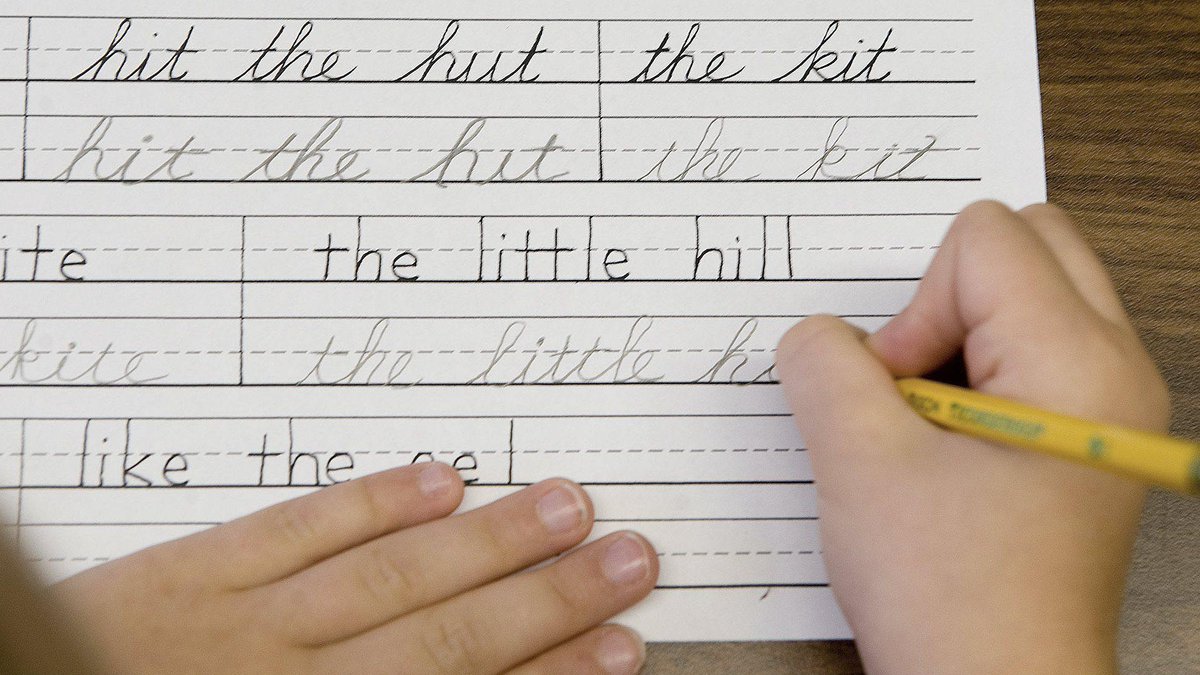 hit the hut the kit
hit the hut the kit
ite the little hill
kite the little hi
like the eel
TICONDEROGA